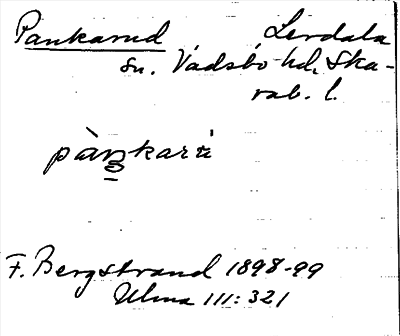 Pankarud Lerdala
sn. Vadsbo hd, Ska-
rab. l.
pàŋkarú
F. Bergstrand 1898-99
Ulma 111:321